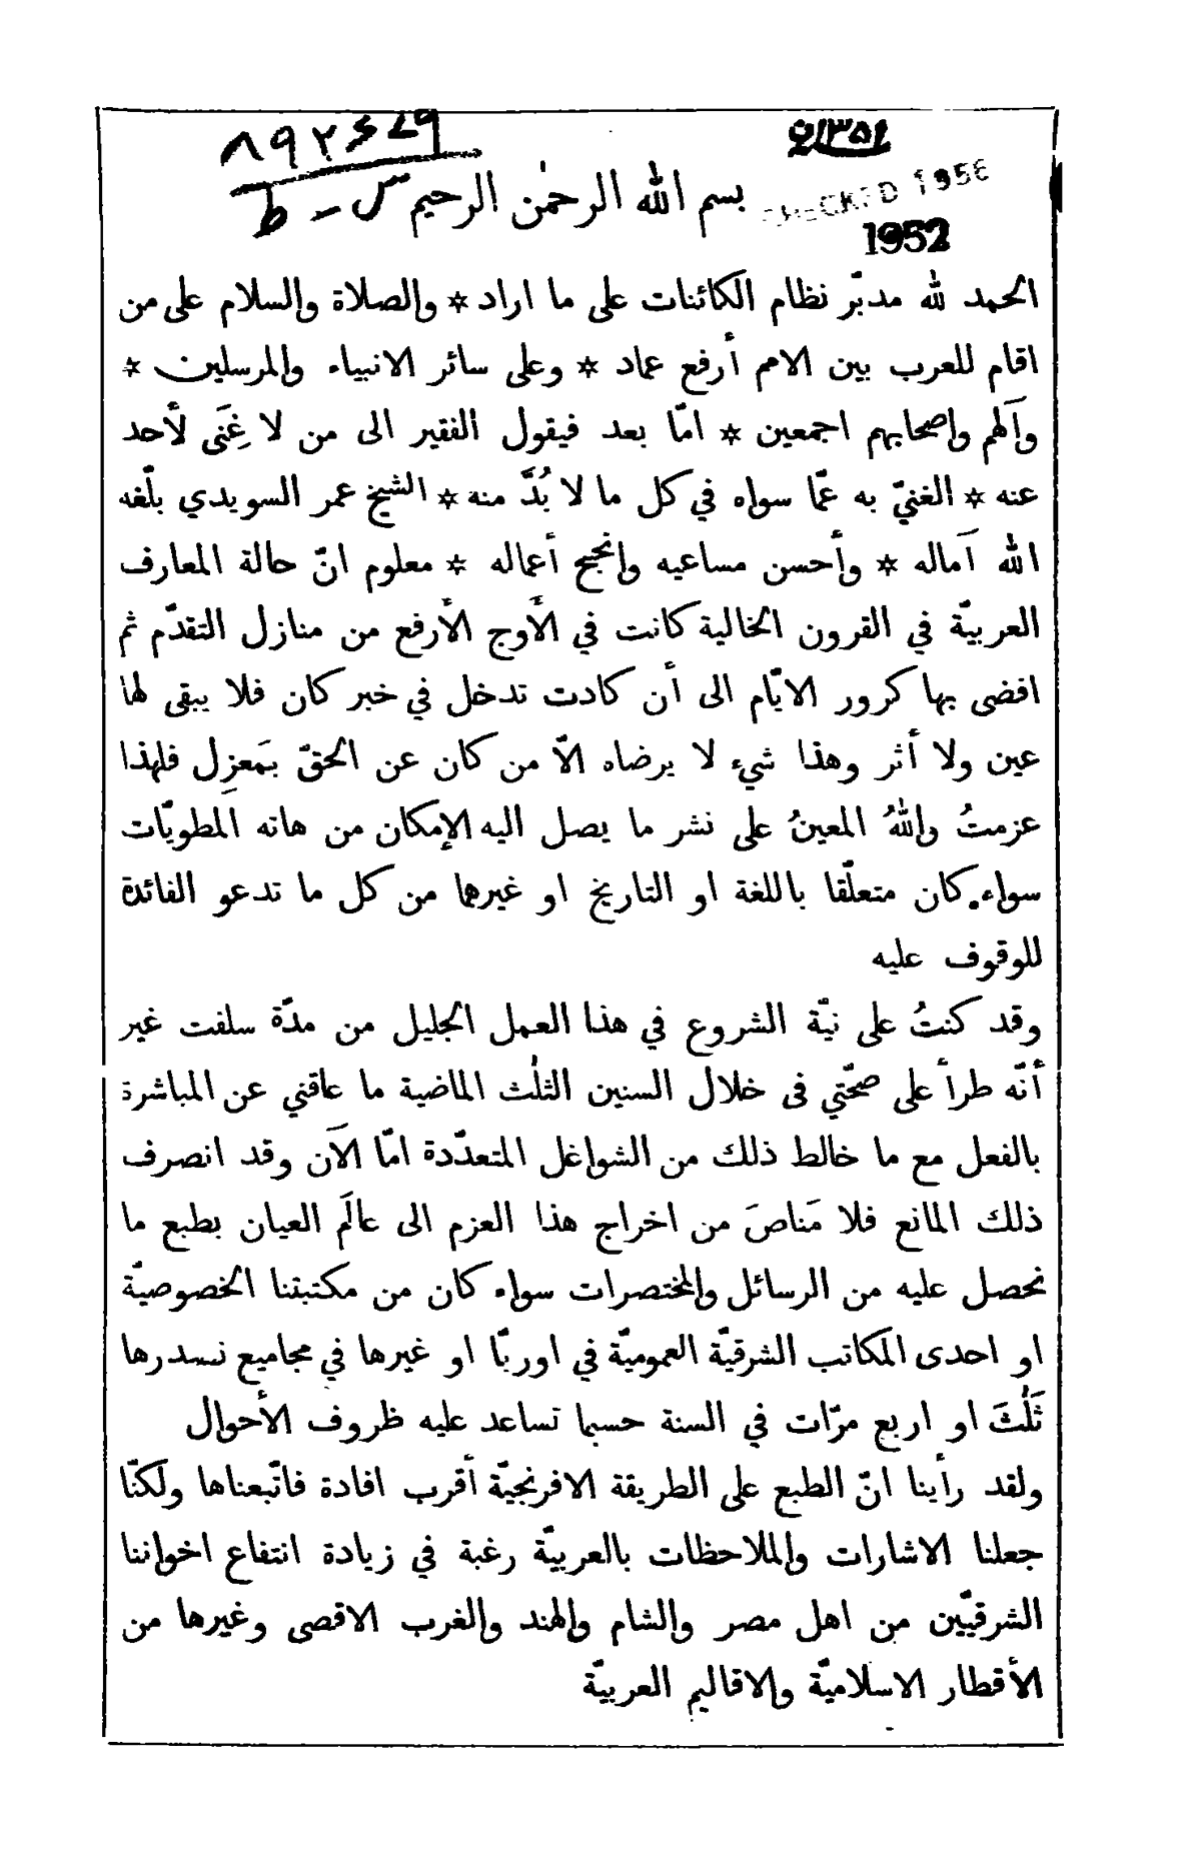 ٨٩٢٤٧٩
س - ط
CHECKED 1956
1952
بسم الله الرحمٰن الرحيم
الحمد لله مدبّر نظام الكائنات على ما اراد * والصلاة والسلام على من
اقام للعرب بين الامم أرفع عماد * وعلى سائر الانبياء والمرسلين *
وآلهم واصحابهم اجمعين * امّا بعد فيقول الفقير الى من لا غِنَى لأحد
عنه * الغنيّ به عمّا سواه في كل ما لا بُدَّ منه * الشيخ عمر السويدي بلّغه
الله آماله * وأحسن مساعيه وانجح أعماله * معلوم انّ حالة المعارف
العربيّة في القرون الخالية كانت في الأوج الأرفع من منازل التقدّم ثم
افضى بها كرور الايّام الى أن كادت تدخل في خبر كان فلا يبقى لها
عين ولا أثر وهذا شيء لا يرضاه الّا من كان عن الحقّ بمَعزِل فلهذا
عزمتُ واللهُ المعينُ على نشر ما يصل اليه الإمكان من هاته المطويّات
سواء كان متعلّقا باللغة او التاريخ او غيرهما من كل ما تدعو الفائدة
للوقوف عليه
وقد كنتُ على نيّة الشروع في هذا العمل الجليل من مدّة سلفت غير
أنّه طرأ على صحّتي فى خلال السنين الثلٰث الماضية ما عاقني عن المباشرة
بالفعل مع ما خالط ذلك من الشواغل المتعدّدة امّا الآن وقد انصرف
ذلك المانع فلا مَناصَ من اخراج هذا العزم الى عالَم العيان بطبع ما
نحصل عليه من الرسائل والمختصرات سواء كان من مكتبتنا الخصوصيّة
او احدى المكاتب الشرقيّة العموميّة في اوربّا او غيرها في مجاميع نسدرها
ثَلٰثَ او اربع مرّات في السنة حسبما تساعد عليه ظروف الأحوال
ولقد رأينا انّ الطبع على الطريقة الافرنجيّة أقرب افادة فاتّبعناها ولكنّا
جعلنا الاشارات والملاحظات بالعربيّة رغبة في زيادة انتفاع اخواننا
الشرقيّين من اهل مصر والشام والهند والغرب الاقصى وغيرها من
الأقطار الاسلاميّة والاقاليم العربيّة